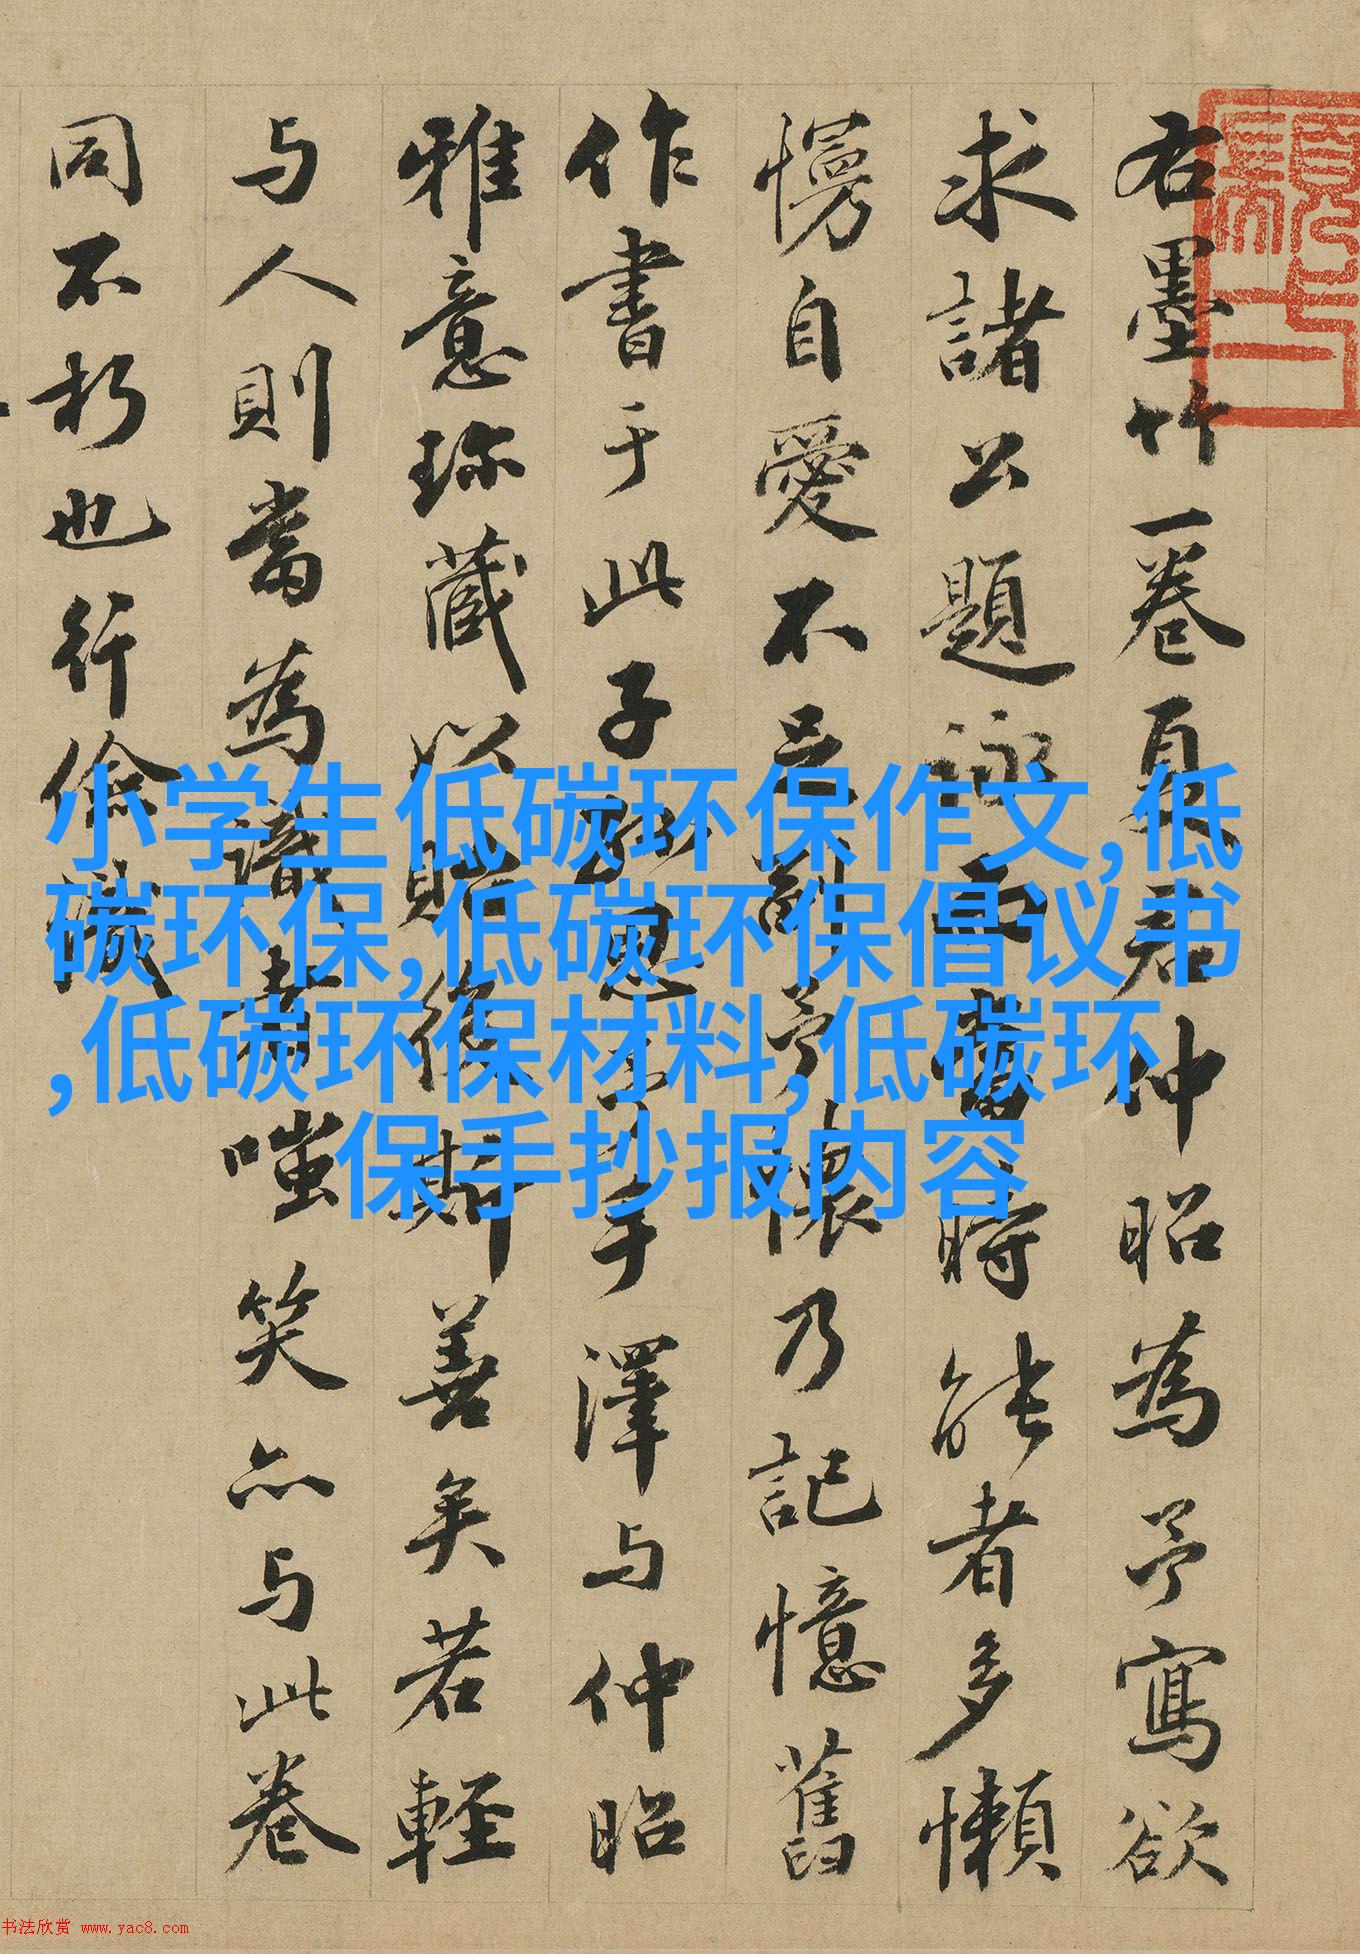 右墨竹一卷夏君仲昭為予寫欲
求諸公題詠而當時能者多懶
慢自愛不副予懷乃記憶舊
作書于此子孫思予手澤与仲昭
雅意珎藏以貽後斯善矣若輕
与人則當為識者嗤笑亦与此卷
同不朽也行儉識
小学生低碳环保作文,低
碳环保,低碳环保倡议书
,低碳环保材料,低碳环
保手抄报内容
书法欣赏 www.yac8.com